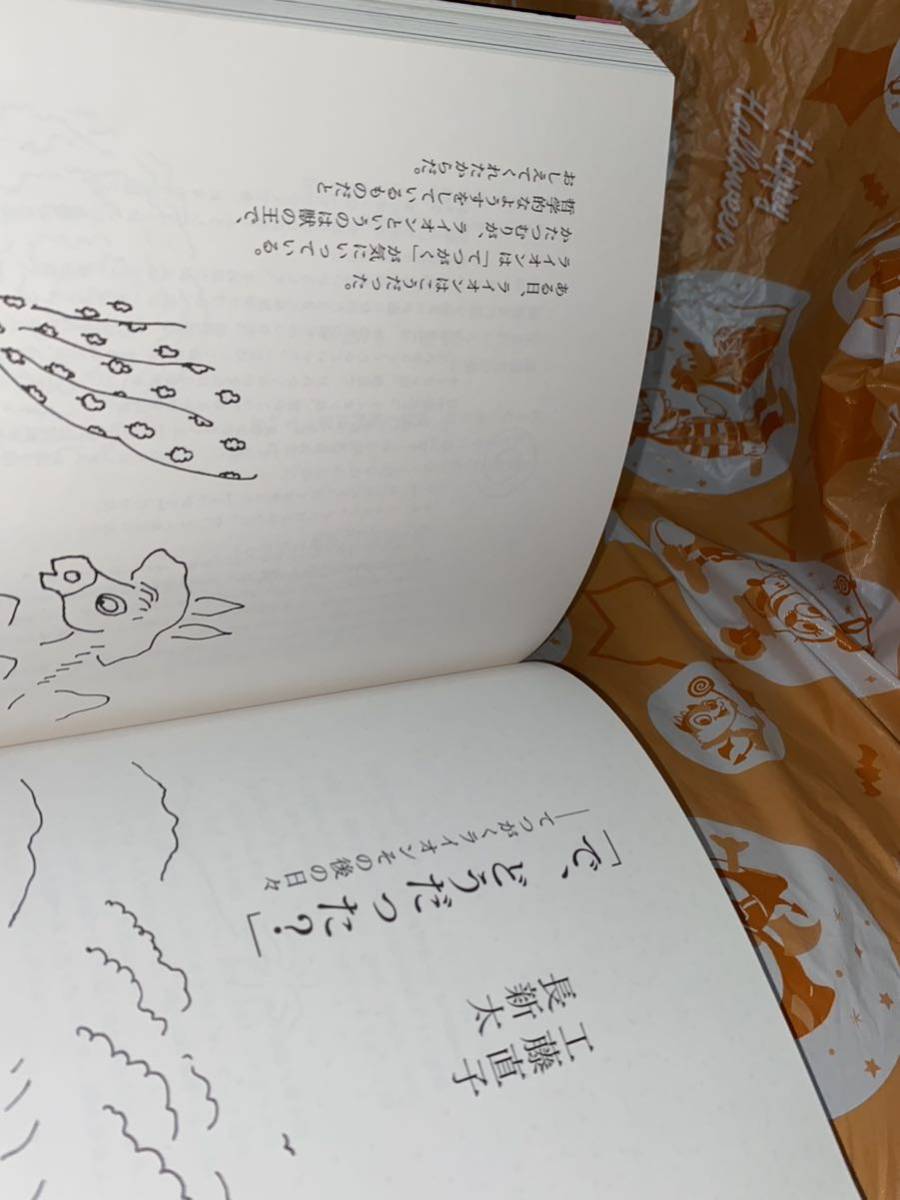 「で、どうだった？」
―てつがくライオンその後の日々
工藤直子
長新太
ある日、ライオンはこうだった。
ライオンは「てつがく」が気にいっている。
かたつむりが、ライオンというのは獣の王で、
哲学的なようすをしているものだと
おしえてくれたからだ。
Happy
Halloween